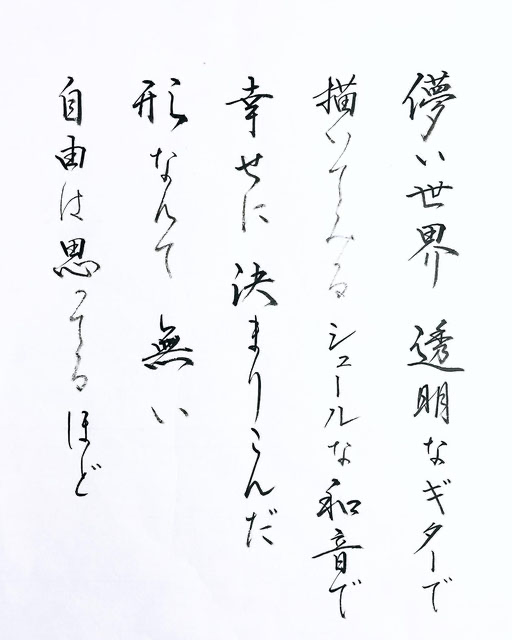 儚い世界 透明なギターで
描いてみる シュールな和音で
幸せに 決まりこんだ
形なんて 無い
自由は思ってるほど